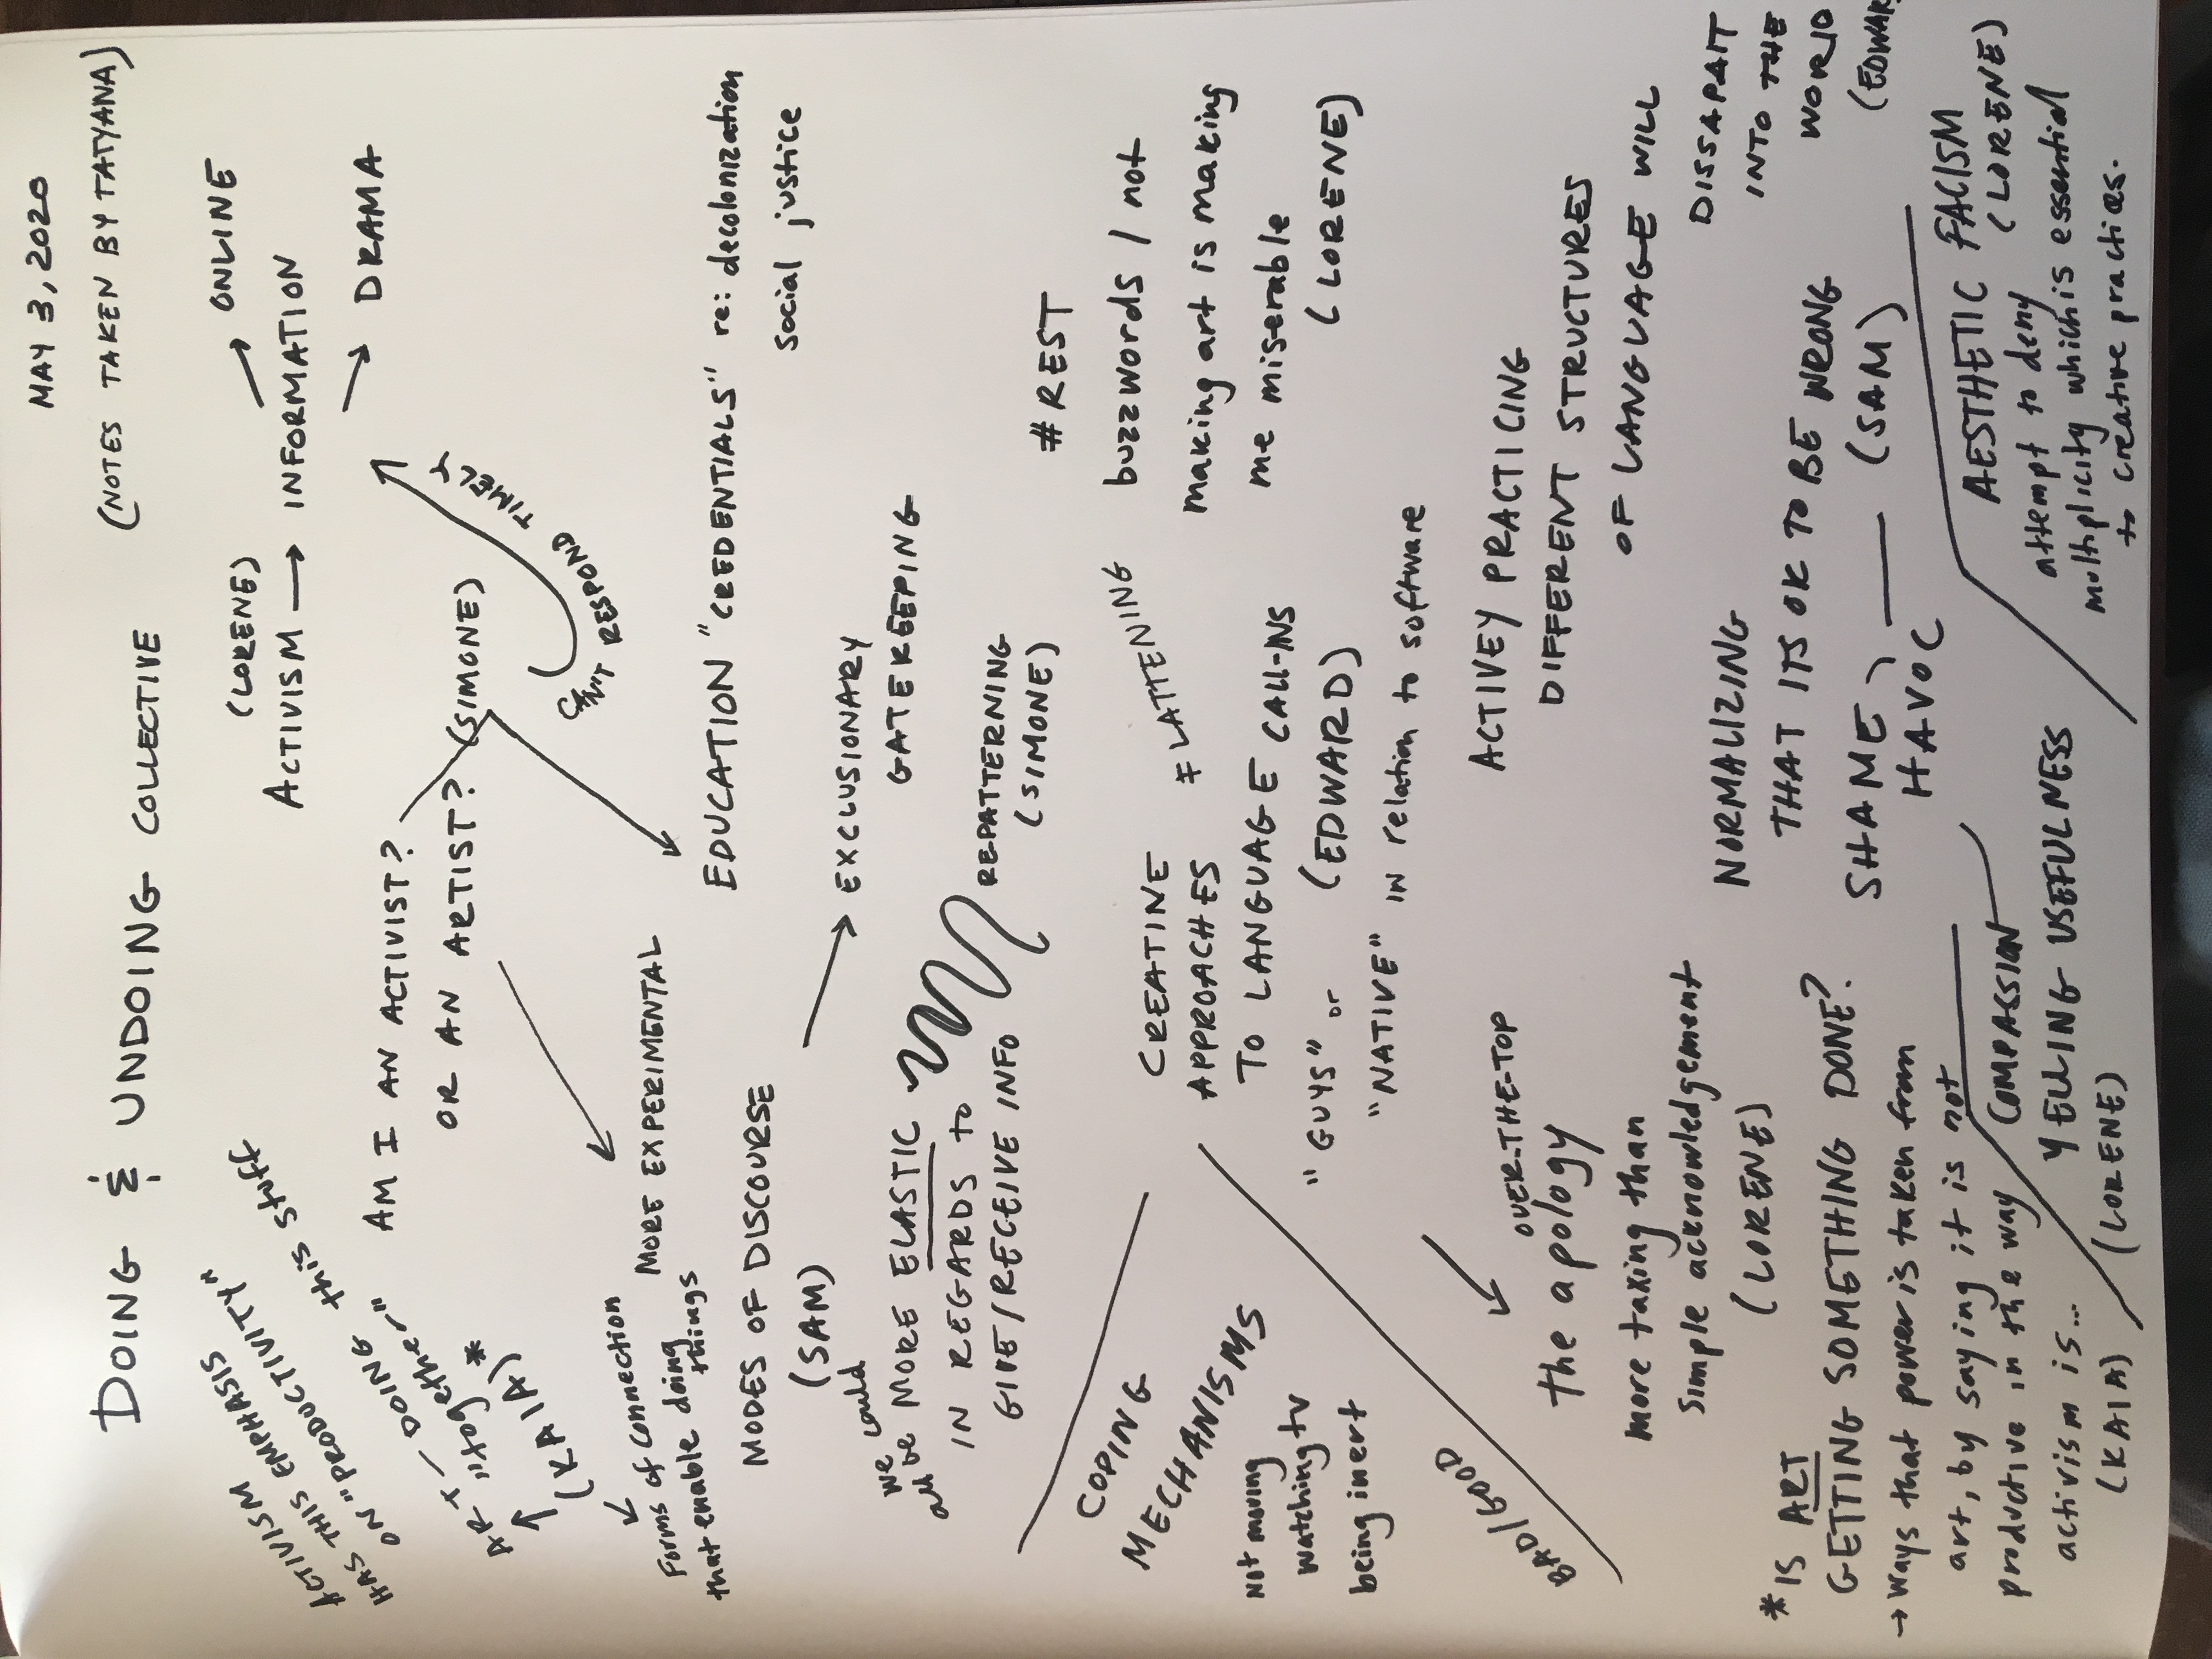 MAY 3, 2020
DOING & UNDOING COLLECTIVE (NOTES TAKEN BY TATYANA)
ACTIVISM
HAS THIS EMPHASIS
ON "PRODUCTIVITY"
ART — DOING this stuff
"together"
*
(KAIA)
(LORENE)
ACTIVISM → INFORMATION
→ ONLINE
→ DRAMA
AM I AN ACTIVIST?
OR AN ARTIST? (SIMONE)
CAN'T RESPOND TIMELY
EDUCATION "CREDENTIALS" re: decolonization
social justice
Forms of connection
that enable doing
things
MORE EXPERIMENTAL
MODES OF DISCOURSE
(SAM)
→ EXCLUSIONARY
GATEKEEPING
we could
all be MORE ELASTIC
IN REGARDS to
GIVE/RECEIVE INFO
REPATTERNING
(SIMONE)
# REST
buzzwords / not
making art is making
me miserable
(LORENE)
COPING
MECHANISMS
Not moving
watching tv
being inert
CREATINE
APPROACHES
TO LANGUAGE CALL-INS
# LATTENING
"GUYS" or (EDWARD)
"NATIVE" IN relation to software
BAD/GOOD
OVER-THE-TOP
the apology
more taxing than
simple acknowledgement
(LORENE)
ACTIVEY PRACTICING
DIFFERENT STRUCTURES
OF LANGUAGE WILL
DISSAPAIT
INTO THE
WORLD
NORMALIZING
THAT ITS OK TO BE WRONG
SHAME) — (SAM)
HAVOC
* IS ART
GETTING SOMETHING DONE?
→ ways that power is taken from
art, by saying it is not
productive in the way
activism is...
(KAIA)
COMPASSION
YELLING USEFULNESS
(LORENE)
AESTHETIC FACISM
(LORENE)
attempt to deny
multiplicity which is essential
to creative practices.